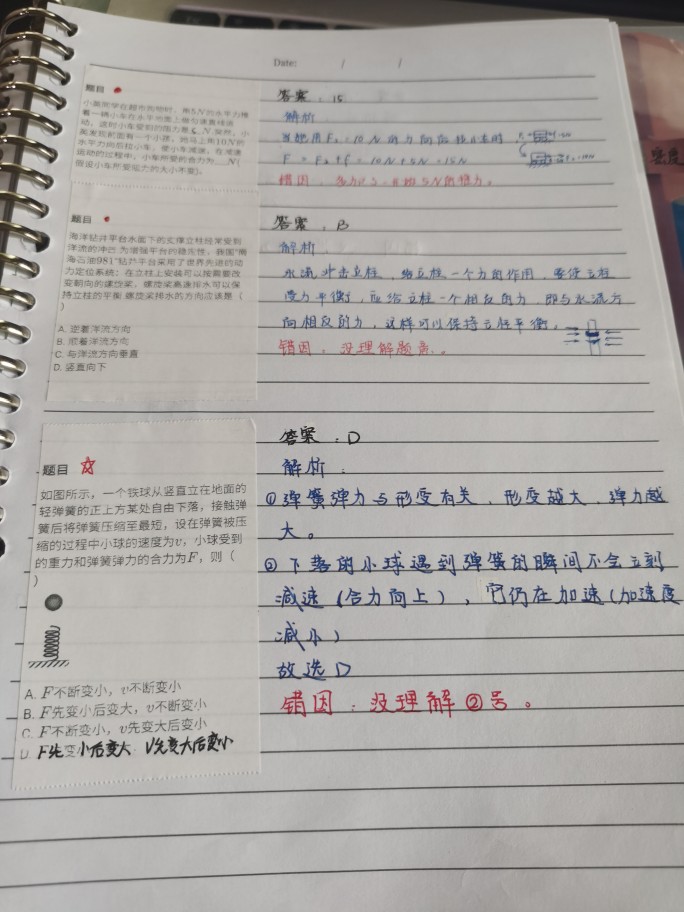 Date: / /
题目
小英同学在超市购物时，用5N的水平力推
着一辆小车在水平地面上做匀速直线运
动，这时小车受到的阻力是5N，突然，小
英发现前面有一个小孩，她马上用10N的
水平力向后拉小车，使小车减速，在减速
运动的过程中，小车所受的合力为 N(
假设小车所受阻力的大小不变)。
答案：15
解析
F = F₂+f = 10N+5N = 15N
题目
海洋钻井平台水面下的支撑立柱经常受到
洋流的冲击.为增强平台的稳定性，我国"南
海石油981"钻井平台采用了世界先进的动
力定位系统：在立柱上安装可以按需要改
变朝向的螺旋桨，螺旋桨高速排水可以保
持立柱的平衡.螺旋桨排水的方向应该是（
）
A. 逆着洋流方向
B. 顺着洋流方向
C. 与洋流方向垂直
D. 竖直向下
答案：B
解析：
水流冲击立柱，给立柱一个力的作用，要使立柱
受力平衡，应给立柱一个相反的力，即与水流方
向相反的力，这样可以保持立柱平衡。
错因：没理解题意。
题目
如图所示，一个铁球从竖直立在地面的
轻弹簧的正上方某处自由下落，接触弹
簧后将弹簧压缩至最短，设在弹簧被压
缩的过程中小球的速度为v，小球受到
的重力和弹簧弹力的合力为F，则（
）
A. F不断变小，v不断变小
B. F先变小后变大，v不断变小
C. F不断变小，v先变大后变小
D. F先变小后变大 V先变大后变小
答案：D
解析：
①弹簧弹力与形变有关，形变越大，弹力越
大。
②下落的小球遇到弹簧的瞬间不会立刻
减速（合力向上），它仍在加速（加速度
减小）
故选D
错因：没理解②号。